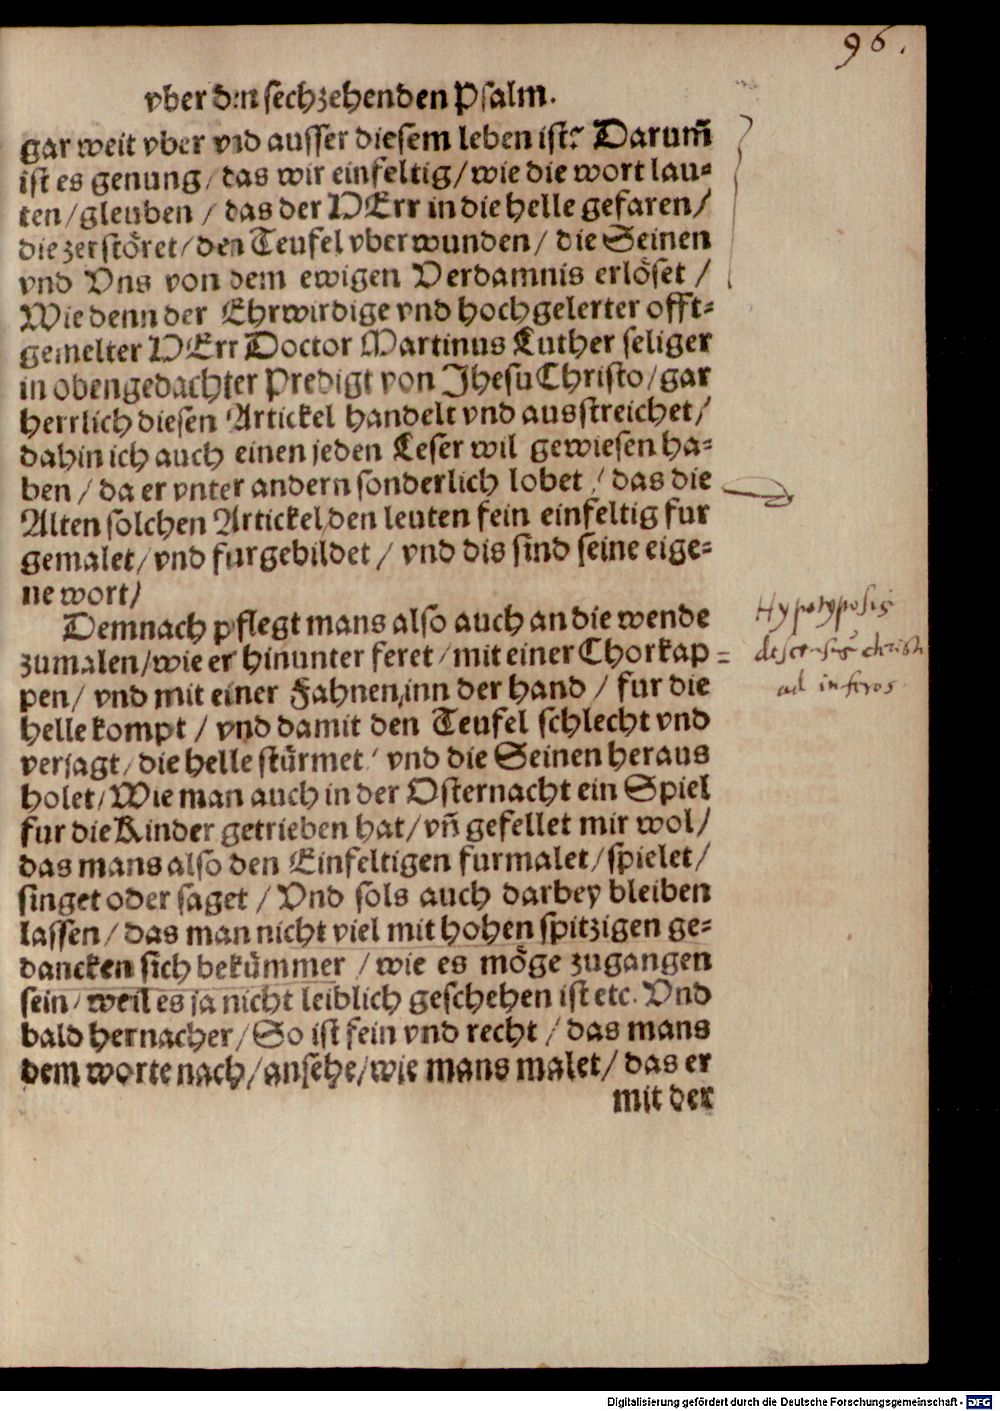 96.
vber den sechzehenden Psalm.
gar weit vber vnd ausser diesem leben ist? Darum̃
ist es genung/das wir einfeltig/wie die wort lau⸗
ten/gleuben/das der HErr in die helle gefaren/
die zerstöret/den Teufel vberwunden/die Seinen
vnd Vns von dem ewigen Verdamnis erlöset/
Wie denn der Ehrwirdige vnd hochgelerter offt⸗
gemelter HErr Doctor Martinus Luther seliger
in obengedachter Predigt von Jhesu Christo/gar
herrlich diesen Artickel handelt vnd ausstreichet/
dahin ich auch einen jeden Leser wil gewiesen ha⸗
ben/da er vnter andern sonderlich lobet/das die
Alten solchen Artickel/den leuten fein einfeltig fur
gemalet/vnd furgebildet/vnd dis sind seine eige⸗
ne wort/
Demnach pflegt mans also auch an die wende
zumalen/wie er hinunter feret/mit einer Chorkap⸗
pen/vnd mit einer Fahnen/inn der hand/fur die
helle kompt/vnd damit den Teufel schlecht vnd
verjagt/die helle stürmet/vnd die Seinen heraus
holet/Wie man auch in der Osternacht ein Spiel
fur die Kinder getrieben hat/vñ gefellet mir wol/
das mans also den Einfeltigen furmalet/spielet/
singet oder saget/Vnd sols auch darbey bleiben
lassen/das man nicht viel mit hohen spitzigen ge⸗
dancken sich bekümmer/wie es möge zugangen
sein/weil es ja nicht leiblich geschehen ist etc. Vnd
bald hernacher/So ist fein vnd recht/das mans
dem worte nach/ansehe/wie mans malet/das er
mit der
Hypotyposis
descensus christi
ad inferos.
Digitalisierung gefördert durch die Deutsche Forschungsgemeinschaft - DFG